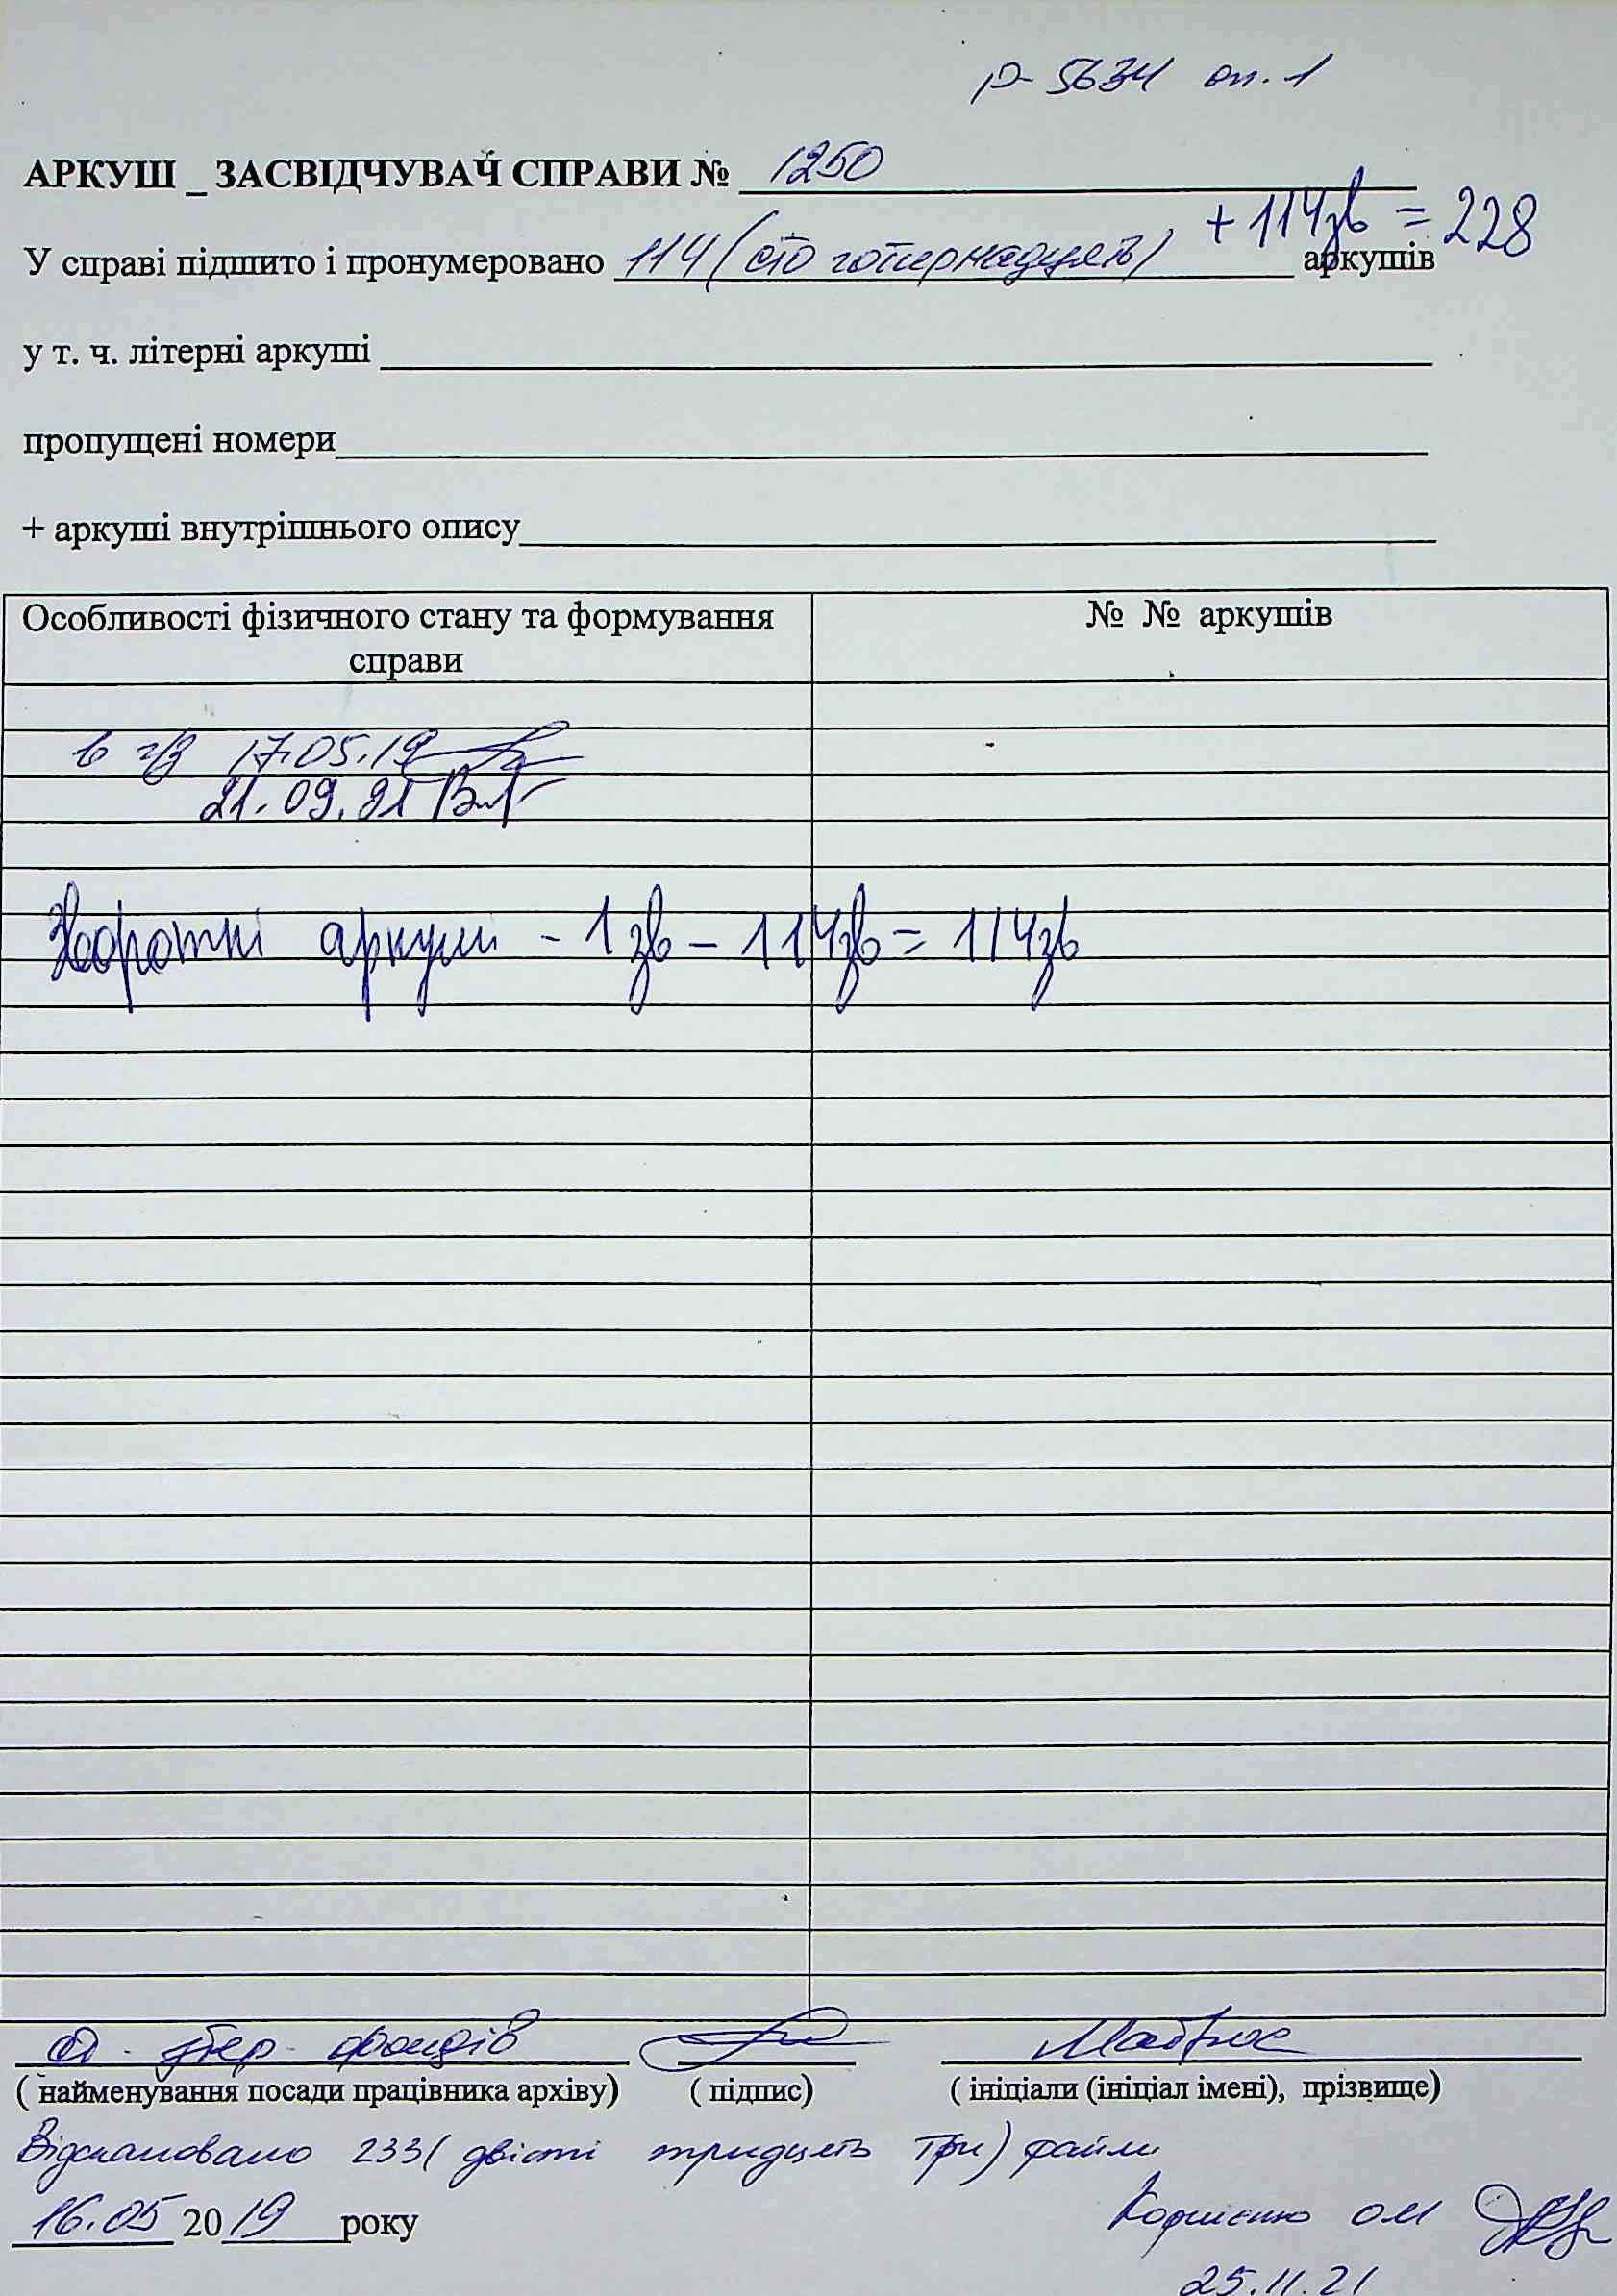 р-5634 оп. 1
АРКУШ _ ЗАСВІДЧУВАЧ СПРАВИ № 1250
У справі підшито і пронумеровано 114 (сто чотирнадцять) + 114зв = 228 аркушів
у т. ч. літерні аркуші
пропущені номери
+ аркуші внутрішнього опису
Особливості фізичного стану та формування справи
№ № аркушів
17.05.19
21.09.21
Зворотні аркуши - 1зв - 114зв = 114зв
збер. фондів
( найменування посади працівника архіву) ( підпис) ( ініціали (ініціал імені), прізвище)
Відскановано 233 (двісті тридцять три) файли
16.05 2019 року
Корнієнко ОМ
25.11.21